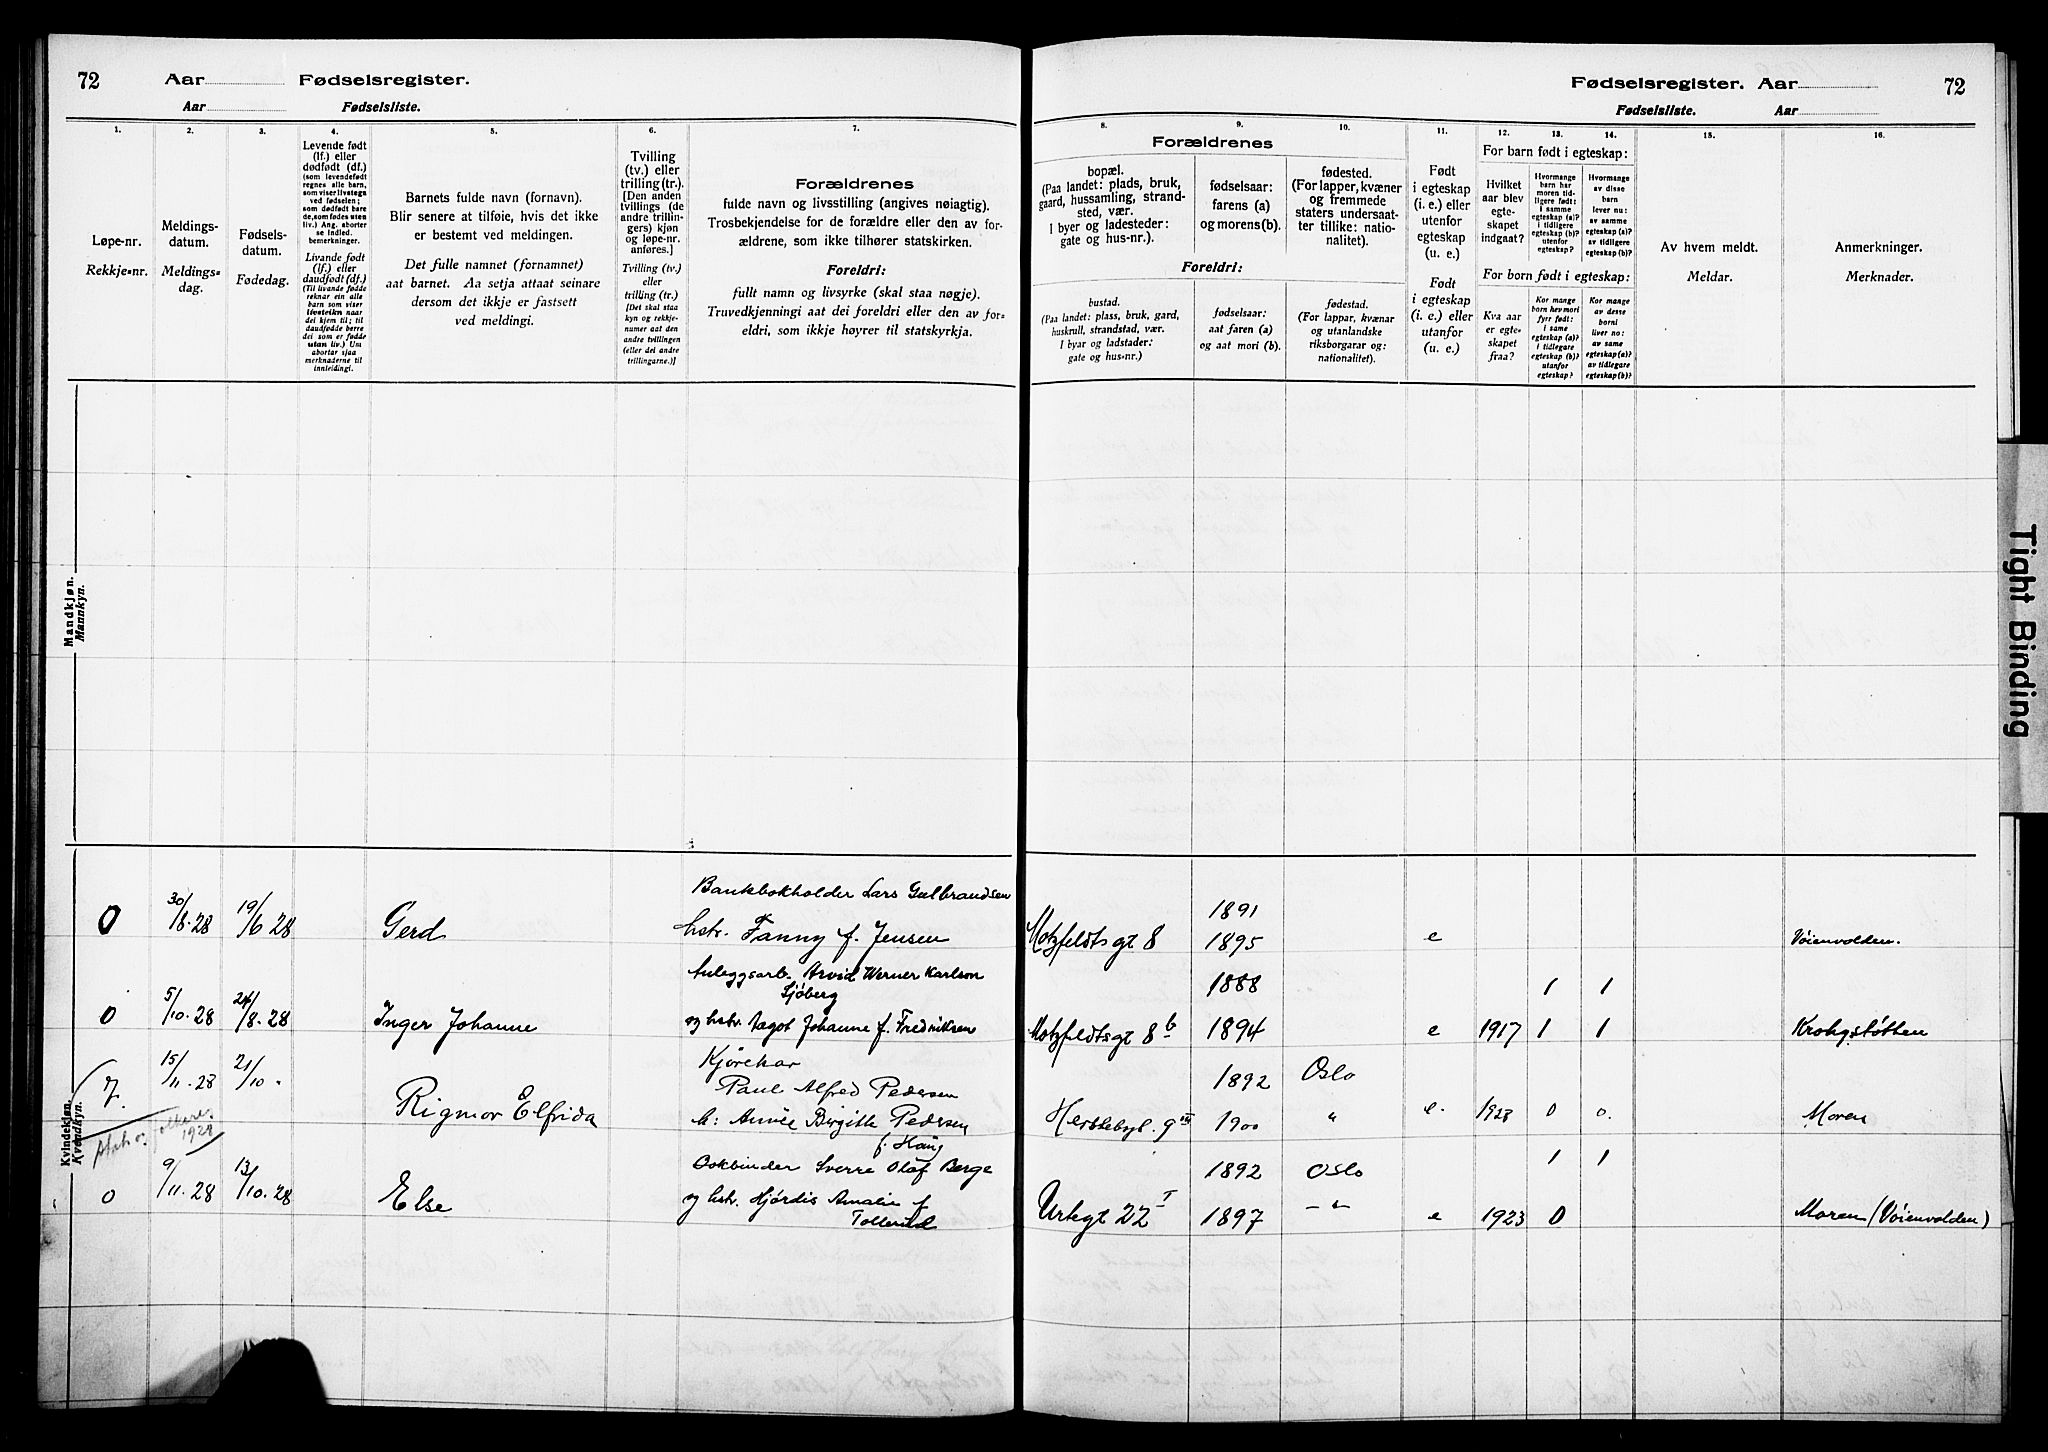 72 Aar Fødselsregister.
Aar Fødselsliste.
1.
Løpe-nr.
Rekkje-nr.
2.
Meldings-
datum.
Meldings-
dag.
3.
Fødsels-
datum.
Fødedag.
4.
Levende født
(lf.) eller
dødfødt (df.)
(som levendefødt
regnes alle barn,
som viser livstegn
ved fødselen;
som dødfødt bare
de, som fødes uten
liv.) Ang. aborter
se indled.
bemerkninger.
Livande født
(lf.) eller
daudfødt (df.)
(Til livande fødde
reknar ein alle
barn som viser
livsteikn naar
dei kjem til; til
daudfødde berre
dei som er fødde
utan liv.) Um
abortar sjaa
merknaderne til
innleidingi.
5.
Barnets fulde navn (fornavn).
Blir senere at tilføie, hvis det ikke
er bestemt ved meldingen.
Det fulle namnet (fornamnet)
aat barnet. Aa setja attaat seinare
dersom det ikkje er fastsett
ved meldingi.
6.
Tvilling
(tv.) eller
trilling (tr.).
[Den anden
tvillings (de
andre trillin-
gers) kjøn
og løpe-nr.
anføres.]
Tvilling (tv.)
eller
trilling (tr.)
[Det skal staa
kyn og rekkje-
numer aat den
andre tvillingen
(eller dei andre
trillingarne.)]
7.
Forældrenes
fulde navn og livsstilling (angives nøiagtig).
Trosbekjendelse for de forældre eller den av for-
ældrene, som ikke tilhører statskirken.
Foreldri:
fullt namn og livsyrke (skal staa nøgje).
Truvedkjenningi aat dei foreldri eller den av for-
eldri, som ikkje høyrer til statskyrkja.
Fødselsregister. Aar 72
Fødselsliste. Aar
Forældrenes
8.
bopæl.
(Paa landet: plads, bruk,
gaard, hussamling, strand-
sted, vær.
I byer og ladesteder:
gate og hus-nr.).
9.
fødselsaar:
farens (a)
og morens (b).
10.
fødested.
(For lapper, kvæner
og fremmede
staters undersaat-
ter tillike: natio-
nalitet).
Foreldri:
bustad.
(Paa landet: plass, bruk, gard,
huskrull, strandstad, vær.
I byar og ladstader:
gate og hus-nr.)
fødselsaar:
aat faren (a)
og aat mori (b).
fødestad.
(For lappar, kvænar
og utanlandske
riksborgarar og:
nationalitet).
11.
Født
i egteskap
(i. e.) eller
utenfor
egteskap
(u. e.)
Født
i egteskap
(i. e.) eller
utanfor
(u. e.)
For barn født i egteskap:
12.
Hvilket
aar blev
egte-
skapet
indgaat?
13.
Hvormange
barn har
moren tid-
ligere født:
i samme
egteskap (a)?
i tidligere
egteskap (b)?
utenfor
egteskap?
14.
Hvormange
av disse
barn
lever nu:
av samme
egteskap (a)?
av tidligere
egteskap (b)?
For born født i egteskap:
Kva aar
er egte-
skapet
fraa?
Kor mange
born hev mori
fyrr født:
i same
egteskap (a)?
i tidlegare
egteskap (b)?
utanfor
egteskap?
Kor mange
av desse
borni
liver no:
av same
egteskap (a)?
av tidlegare
egteskap (b)?
15.
Av hvem meldt.
Meldar.
16.
Anmerkninger.
Merknader.
Tight Binding
Mandkjøn.
Mannkyn.
Kvindekjøn.
Kvendkyn.
Bankbokholder Lars Gulbrandsen 1891
0 30/8.28 19/6 28 Gerd hstr. Fanny f. Jensen Motzfeldtsgt 8 1895 e Vöienvolden.
Anleggsarb. Arvid Werner Karlson 1888 1 1
Sjöberg
0 5/10.28 24/8.28 Inger Johanne og hstr. Aagot Johanne f. Fredriksen Motzfeldtsgt 8 b 1894 e 1917 1 1 Krohgstøtten
15/11.28 21/10 Kjörekar 1892 Oslo
7. Rigmor Elfrida Paul Alfred Pedersen
h: Annie Birgitte Pedersen 1900 " e. 1928 0 0. Moren
f. Haug
1928
9/11.28 13/10.28 Bokbinder Sverre Olaf Berge 1892 Oslo 1 1
0 Else og hstr. Hjördis Amalie f. Urtegt 22 I 1897 —"— e 1923 0 Moren (Vöienvolden)
Tollerud